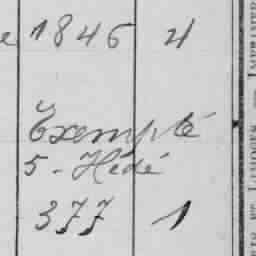 1846 4
Exempté
5 - Hédé
377 1